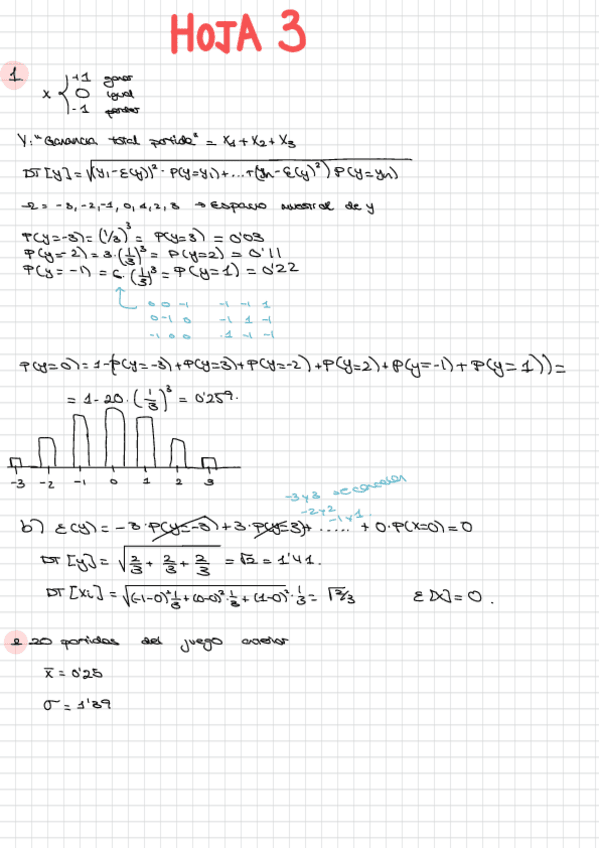 HOJA 3
1.
X { +1 ganar
0 igual
-1 perder
Y: "Ganancia total partida" = X1 + X2 + X3
DT[y] = √((y1-E(y))² · P(y=y1) + ... + (yn - E(y)²) P(y=yn)
-Ω = -3, -2, -1, 0, 1, 2, 3 → Espacio muestral de y
P(y=-3) = (1/3)³ = P(y=3) = 0'03
P(y=-2) = 3·(1/3)³ = P(y=2) = 0'11
P(y=-1) = 6·(1/3)³ = P(y=1) = 0'22
0 0 -1   -1 -1 1
0 -1 0   -1 1 -1
-1 0 0   1 -1 -1
P(y=0) = 1-(P(y=-3) + P(y=3) + P(y=-2) + P(y=2) + P(y=-1) + P(y=1)) =
= 1 - 20·(1/3)³ = 0'259.
-3 -2 -1 0 1 2 3
-3 y 3 se cancelan
-2 y 2
-1 y 1
b) E(y) = -3·P(y=-3) + 3·P(y=3) + ..... + 0·P(X=0) = 0
DT[y] = √(2/3 + 2/3 + 2/3) = √2 = 1'41.
DT[Xi] = √((-1-0)² 1/3 + (0-0)²·1/3 + (1-0)²·1/3 = √2/3   E[X] = 0.
2 20 partidas del juego anterior
x̄ = 0'25
σ = 1'39